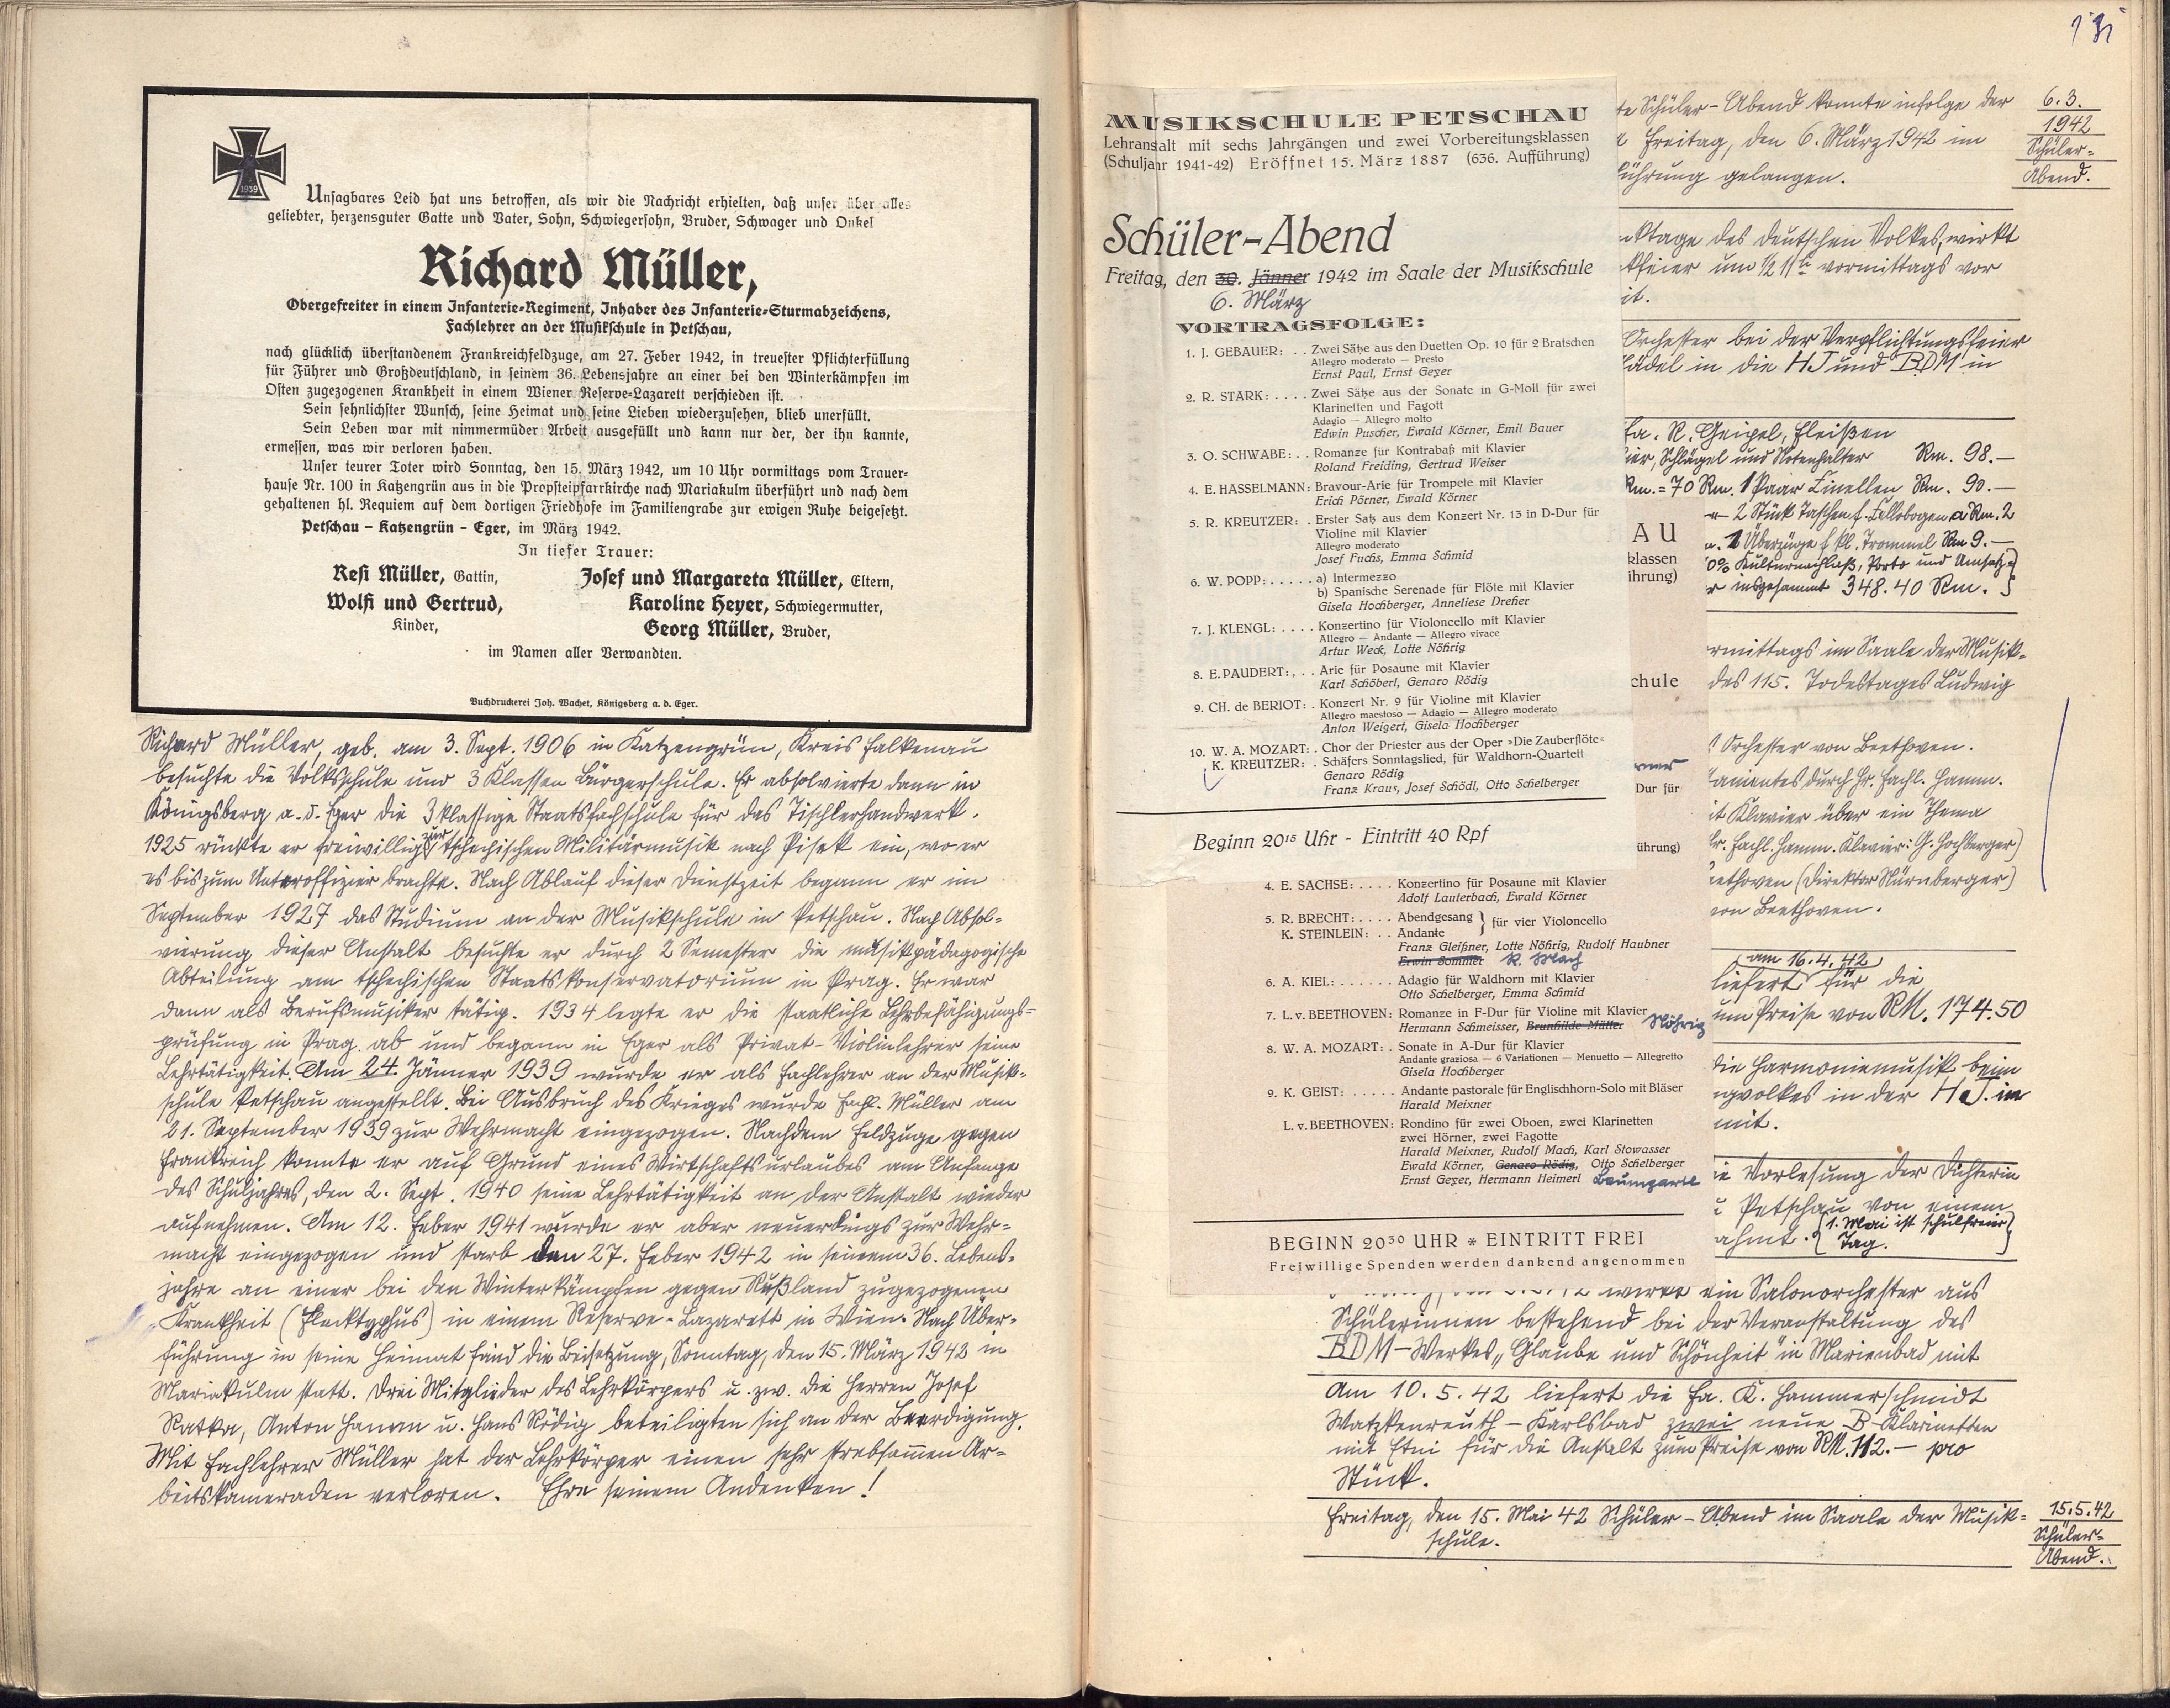 1939
Unsagbares Leid hat uns betroffen, als wir die Nachricht erhielten, daß unser über alles
geliebter, herzensguter Gatte und Vater, Sohn, Schwiegersohn, Bruder, Schwager und Onkel
Richard Müller,
Obergefreiter in einem Infanterie-Regiment, Inhaber des Infanterie-Sturmabzeichens,
Fachlehrer an der Musikschule in Petschau,
nach glücklich überstandenem Frankreichfeldzuge, am 27. Feber 1942, in treuester Pflichterfüllung
für Führer und Großdeutschland, in seinem 36. Lebensjahre an einer bei den Winterkämpfen im
Osten zugezogenen Krankheit in einem Wiener Reserve-Lazarett verschieden ist.
Sein sehnlichster Wunsch, seine Heimat und seine Lieben wiederzusehen, blieb unerfüllt.
Sein Leben war mit nimmermüder Arbeit ausgefüllt und kann nur der, der ihn kannte,
ermessen, was wir verloren haben.
Unser teurer Toter wird Sonntag, den 15. März 1942, um 10 Uhr vormittags vom Trauer-
hause Nr. 100 in Katzengrün aus in die Propsteipfarrkirche nach Mariakulm überführt und nach dem
gehaltenen hl. Requiem auf dem dortigen Friedhofe im Familiengrabe zur ewigen Ruhe beigesetzt.
Petschau – Katzengrün – Eger, im März 1942.
In tiefer Trauer:
Resi Müller, Gattin,
Wolfi und Gertrud,
Kinder,
Josef und Margareta Müller, Eltern,
Karoline Heyer, Schwiegermutter,
Georg Müller, Bruder,
im Namen aller Verwandten.
Buchdruckerei Joh. Wachet, Königsberg a. d. Eger.
Richard Müller, geb. am 3. Sept. 1906 in Katzengrün, Kreis Falkenau
besuchte die Volksschule und 3 Klassen Bürgerschule. Er absolvierte dann in
Königsberg a. d. Eger die 3klassige Staatsfachschule für das Tischlerhandwerk.
1925 rückte er freiwillig zur tschechischen Militärmusik nach Pisek ein, wo er
es bis zum Unteroffizier brachte. Nach Ablauf dieser Dienstzeit begann er im
September 1927 das Studium an der Musikschule in Petschau. Nach Absol-
vierung dieser Anstalt besuchte er durch 2 Semester die musikpädagogische
Abteilung am tschechischen Staatskonservatorium in Prag. Er war
dann als Berufsmusiker tätig. 1934 legte er die staatliche Lehrbefähigungs-
prüfung in Prag ab und begann in Eger als Privat-Violinlehrer seine
Lehrtätigkeit. Am 24. Jänner 1939 wurde er als Fachlehrer an der Musik-
schule Petschau angestellt. Bei Ausbruch des Krieges wurde Fachl. Müller am
21. September 1939 zur Wehrmacht eingezogen. Nach dem Feldzuge gegen
Frankreich konnte er auf Grund eines Wirtschaftsurlaubes am Anfange
des Schuljahres, den 2. Sept. 1940 seine Lehrtätigkeit an der Anstalt wieder
aufnehmen. Am 12. Feber 1941 wurde er aber neuerdings zur Wehr-
macht eingezogen und starb den 27. Feber 1942 in seinem 36. Lebens-
jahre an einer bei den Winterkämpfen gegen Rußland zugezogenen
Krankheit (Flecktyphus) in einem Reserve-Lazarett in Wien. Nach Über-
führung in seine Heimat fand die Beisetzung, Sonntag, den 15. März 1942 in
Mariakulm statt. Drei Mitglieder des Lehrkörpers u. zw. die Herren Josef
Ratka, Anton Hamm u. Hans Rödig beteiligten sich an der Beerdigung.
Mit Fachlehrer Müller hat der Lehrkörper einen sehr strebsamen Ar-
beitskameraden verloren. Ehre seinem Andenken!
MUSIKSCHULE PETSCHAU
Lehranstalt mit sechs Jahrgängen und zwei Vorbereitungsklassen
(Schuljahr 1941-42) Eröffnet 15. März 1887 (636. Aufführung)
Schüler-Abend
Freitag, den 30. Jänner 1942 im Saale der Musikschule
6. März
VORTRAGSFOLGE:
1. J. GEBAUER: . . Zwei Sätze aus den Duetten Op. 10 für 2 Bratschen
Allegro moderato — Presto
Ernst Paul, Ernst Geyer
2. R. STARK: . . . . Zwei Sätze aus der Sonate in G-Moll für zwei
Klarinetten und Fagott
Adagio — Allegro molto
Edwin Puscher, Ewald Körner, Emil Bauer
3. O. SCHWABE: . . Romanze für Kontrabaß mit Klavier
Roland Freiding, Gertrud Weiser
4. E. HASSELMANN: Bravour-Arie für Trompete mit Klavier
Erich Pörner, Ewald Körner
5. R. KREUTZER: . Erster Satz aus dem Konzert Nr. 13 in D-Dur für
Violine mit Klavier
Allegro moderato
Josef Fuchs, Emma Schmid
6. W. POPP: . . . . . a) Intermezzo
b) Spanische Serenade für Flöte mit Klavier
Gisela Hochberger, Anneliese Dreßer
7. J. KLENGL: . . . . Konzertino für Violoncello mit Klavier
Allegro — Andante — Allegro vivace
Artur Weck, Lotte Nöhrig
8. E. PAUDERT: , . . Arie für Posaune mit Klavier
Karl Schöberl, Genaro Rödig
9. CH. de BERIOT: . Konzert Nr. 9 für Violine mit Klavier
Allegro maestoso — Adagio — Allegro moderato
Anton Weigert, Gisela Hochberger
10. W. A. MOZART: . Chor der Priester aus der Oper »Die Zauberflöte«
K. KREUTZER: . Schäfers Sonntagslied, für Waldhorn-Quartett
Genaro Rödig
Franz Kraus, Josef Schödl, Otto Schelberger
Beginn 20¹⁵ Uhr - Eintritt 40 Rpf
4. E. SACHSE: . . . . Konzertino für Posaune mit Klavier
Adolf Lauterbach, Ewald Körner
5. R. BRECHT: . . . . Abendgesang } für vier Violoncello
K. STEINLEIN: . . Andante
Franz Gleißner, Lotte Nöhrig, Rudolf Haubner
Erwin Sommer R. Mach
6. A. KIEL: . . . . . . Adagio für Waldhorn mit Klavier
Otto Schelberger, Emma Schmid
7. L. v. BEETHOVEN: Romanze in F-Dur für Violine mit Klavier
Hermann Schmeisser, Brunhilde Mätter Nöhrig
8. W. A. MOZART: . Sonate in A-Dur für Klavier
Andante graziosa — 6 Variationen — Menuetto — Allegretto
Gisela Hochberger
9. K. GEIST: . . . . . Andante pastorale für Englischhorn-Solo mit Bläser
Harald Meixner
L. v. BEETHOVEN: Rondino für zwei Oboen, zwei Klarinetten
zwei Hörner, zwei Fagotte
Harald Meixner, Rudolf Mach, Karl Stowasser
Ewald Körner, Genaro Rödig, Otto Schelberger
Ernst Geyer, Hermann Heimerl Baumgartl
BEGINN 20³⁰ UHR * EINTRITT FREI
Freiwillige Spenden werden dankend angenommen
AU
klassen
ihrung)
chule
Dur für
ührung)
131
te Schüler-Abend konnte infolge der
Freitag, den 6. März 1942 im
führung gelangen.
6.3.
1942
Schüler-
Abend.
nktage des deutschen Volkes, wirkt
kfeier um ½ 11ʰ vormittags vor
it.
Orchester bei der Verpflichtungsfeier
ädel in die HJ und BDM in
Fa. R. Geipel, Fleißen
ier, Schlägel und Notenhalter Rm. 98.—
Rm. = 70 Rm. 1 Paar Zinellen Rm. 90.—
2 Stück Taschen f. Cellobogen a Rm. 2
2 Überzüge f. kl. Trommel Rm 9.—
0% Kulturnachlaß, Porto und Umsatz-
r insgesammt 348.40 Rm. }
rmittags im Saale der Musik-
des 115. Todestages Ludwig
Orchester von Beethoven.
tamentes durch Hr. Fachl. Hamm.
it Klavier über ein Thema
Hr. Fachl. Hamm. Klavier: G. Hochberger)
eethoven (Direktor Nürnberger)
von Beethoven.
(am 16.4.42)
liefert für die
um Preise von RM. 174.50
die Harmoniemusik beim
ngvolkes in der HJ. in
mit.
ie Vorlesung der Dichterin
Petschau von einem
ahmt. { 1. Mai ist schulfreier
Tag. }
wirkt ein Salonorchester aus
Schülerinnen bestehend bei der Veranstaltung des
BDM-Werkes „Glaube und Schönheit" in Marienbad mit
Am 10.5.42 liefert die Fa. K. Hammerschmidt
Watzkenreuth-Karlsbad zwei neue B-Klarinetten
mit Etui für die Anstalt zum Preise von RM. 112.— pro
Stück.
Freitag, den 15. Mai 42 Schüler-Abend im Saale der Musik-
schule.
15.5.42
Schüler-
Abend.